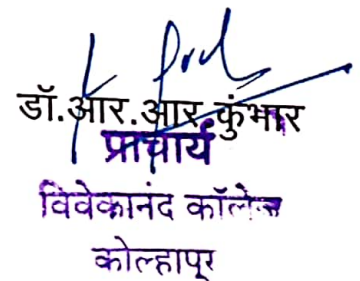 डॉ.आर.आर.कुंभार
प्राचार्य
विवेकानंद कॉलेज
कोल्हापूर